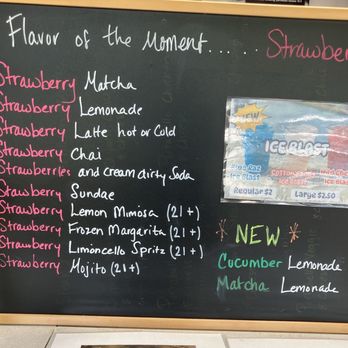 Flavor of the Moment...... Strawber
Strawberry Matcha
Strawberry Lemonade
Strawberry Latte hot or Cold
Strawberry Chai
Strawberries and cream dirty Soda
Strawberry Sundae
Strawberry Lemon Mimosa (21+)
Strawberry Frozen Margarita (21+)
Strawberry Limoncello Spritz (21+)
Strawberry Mojito (21+)
NEW
ICE BLAST
Blue Raz
Ice Blast
Cotton Candy
Ice Blast
Regular $2
Large $2.50
* NEW *
Cucumber Lemonade
Matcha Lemonade